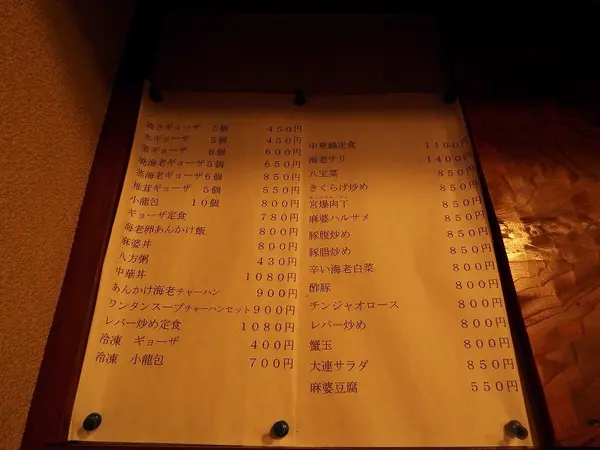 焼きギョーザ 5個 450円
水ギョーザ 5個 450円
蒸ギョーザ 6個 600円
焼海老ギョーザ5個 650円
蒸海老ギョーザ6個 850円
椎茸ギョーザ 5個 550円
小龍包 10個 800円
ギョーザ定食 780円
海老卵あんかけ飯 800円
麻婆丼 800円
八方粥 430円
中華丼 1080円
あんかけ海老チャーハン 900円
ワンタンスープチャーハンセット 900円
レバー炒め定食 1080円
冷凍 ギョーザ 400円
冷凍 小龍包 700円
中華鍋定食 1100円
海老チリ 1400円
八宝菜 850円
きくらげ炒め 850円
宮爆肉丁 850円
麻婆ハルサメ 850円
豚腹炒め 850円
豚腸炒め 850円
辛い海老白菜 850円
酢豚 800円
チンジャオロース 800円
レバー炒め 800円
蟹玉 800円
大連サラダ 850円
麻婆豆腐 550円